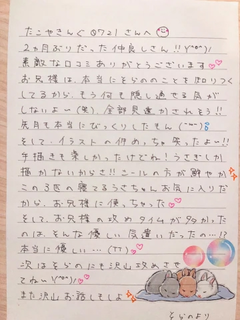 たこやきんぐ0721さんへ
2ヵ月ぶりだった仲良しさん!!
素敵な口コミありがとうございます
お兄様は、本当にそらのことを知りつく
してるから、もう何も隠し通せる気が
しないよー(笑)、全部見透かされそう!!
先月も本当にびっくりしたもん
そして、イラストの件め、ちゃ笑ったよー!!
手描きも楽しかったけどね!うさぎしか
描かないからさ!!シールの方が鮮やか
この3匹の寝てるうさちゃんお気に入りだ
から、お兄様に使っちゃった
そして、お兄様の攻めタイムが多かった
のは、そんな優しい気遣いだったの…!?
本当に優しい…(TT)
次はそらのにも沢山攻めさせ
てねー
また沢山お話しそしよ
そらのより